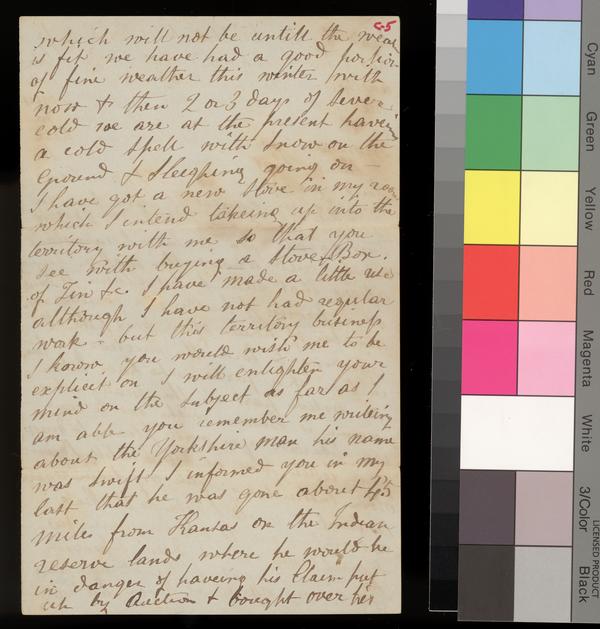 C-5
which will not be untill the wear
is fit we have had a good portion
of fine weather this winter with
now & then 2 or 3 days of sever
cold we are at the present haveing
a cold spell with snow on the
Ground & Sleaghing going on -
I have got a new stove in my room
which I intend takeing up into the
territory with me so that you
see with buying a stove, Box.
of Tin &c. I have made a little use
although I have not had regular
work - but this territory business
I know you would wish me to be
explicit on I will enlighten your
mind on the subject as far as I
am able you remember me writeing
about the Yorkshire man his name
was Swift I informed you in my
last that he was gone about 45
miles from Kansas on the Indian
reserve lands where he would be
in danger of haveing his Claim put
up by Auction & bought over his
Cyan
Green
Yellow
Red
Magenta
White
3/Color
Black
LICENSED PRODUCT